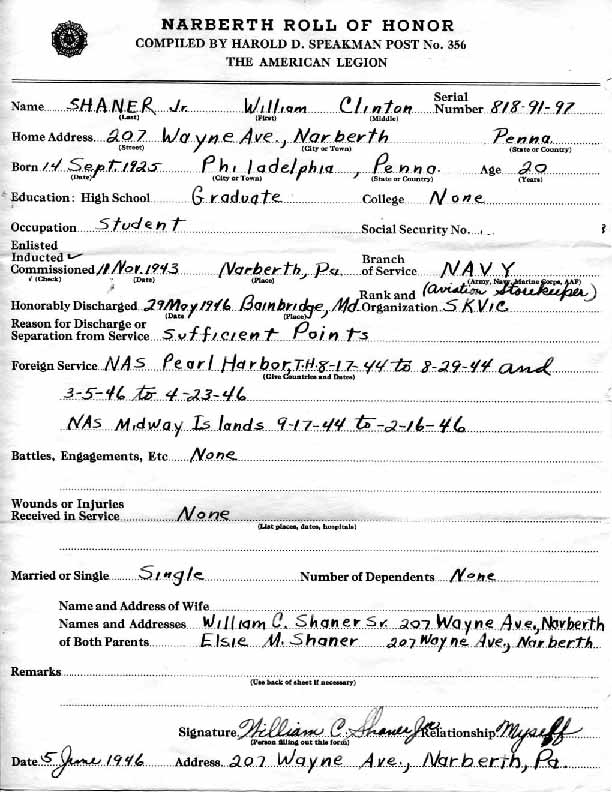 NARBERTH ROLL OF HONOR
COMPILED BY HAROLD D. SPEAKMAN POST No. 356
THE AMERICAN LEGION
Name SHANER Jr. William Clinton Serial Number 818-91-97
(Last) (First) (Middle)
Home Address 207 Wayne Ave., Narberth Penna.
(Street) (City or Town) (State or Country)
Born 14 Sept. 1925 Philadelphia, Penna. Age 20
(Date) (City or Town) (State or Country) (Years)
Education: High School Graduate College None
Occupation Student Social Security No.
Enlisted
Inducted ✓ Branch
Commissioned 18 Nov. 1943 Narberth, Pa. of Service NAVY
√ (Check) (Date) (Place) (Army, Navy, Marine Corps, AAF)
Rank and (Aviation Storekeeper)
Honorably Discharged 29 May 1946 Bainbridge, Md. Organization SKV1c
(Date) (Place)
Reason for Discharge or
Separation from Service Sufficient Points
Foreign Service NAS Pearl Harbor, T.H. 8-17-44 to 8-29-44 and
(Give Countries and Dates)
3-5-46 to 4-23-46
NAS Midway Islands 9-17-44 to -2-16-46
Battles, Engagements, Etc. None
Wounds or Injuries
Received in Service None
(List places, dates, hospitals)
Married or Single Single Number of Dependents None
Name and Address of Wife
Names and Addresses William C. Shaner Sr. 207 Wayne Ave., Narberth
of Both Parents Elsie M. Shaner 207 Wayne Ave., Narberth
Remarks
(Use back of sheet if necessary)
Signature William C. Shaner Jr. Relationship Myself
(Person filling out this form)
Date 5 June 1946 Address 207 Wayne Ave., Narberth, Pa.